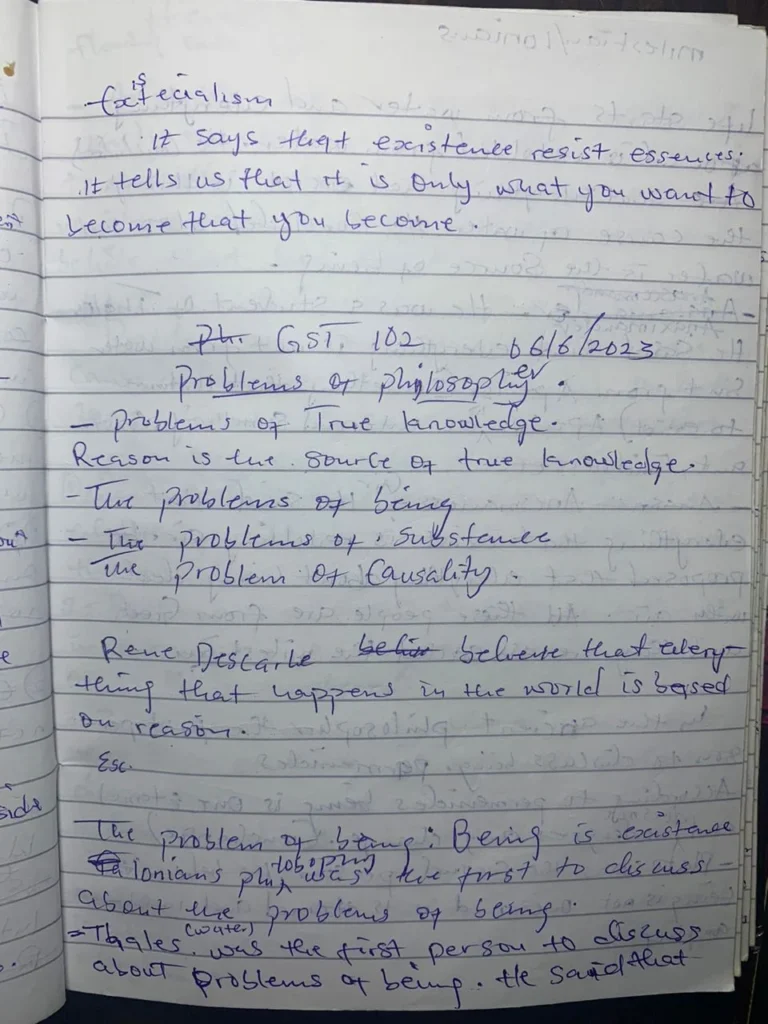 Existecialism
It says that existence resist essences.
It tells us that it is only what you want to
become that you become.
Ph. GST. 102 06/6/2023
problems of philosopher.
- problems of True knowledge.
Reason is the source of true knowledge.
- The problems of being
- The problems of substance
The problem of Causality.
Rene Descarte believe that every-
thing that happens in the world is based
on reason.
Esc.
The problem of being: Being is existence
Ionians philosophy was the first to discuss
about the problems of being.
= Thales (water) was the first person to discuss
about problems of being. He said that